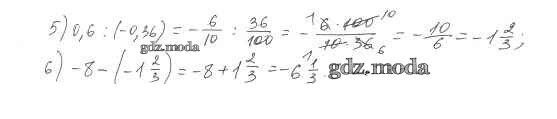 5) 0,6 : (-0,36) = -6/10 : 36/100 = -6·100/10·36 = -10/6 = -1 2/3;
gdz.moda
6) -8-(-1 2/3) = -8+1 2/3 = -6 1/3.
gdz.moda